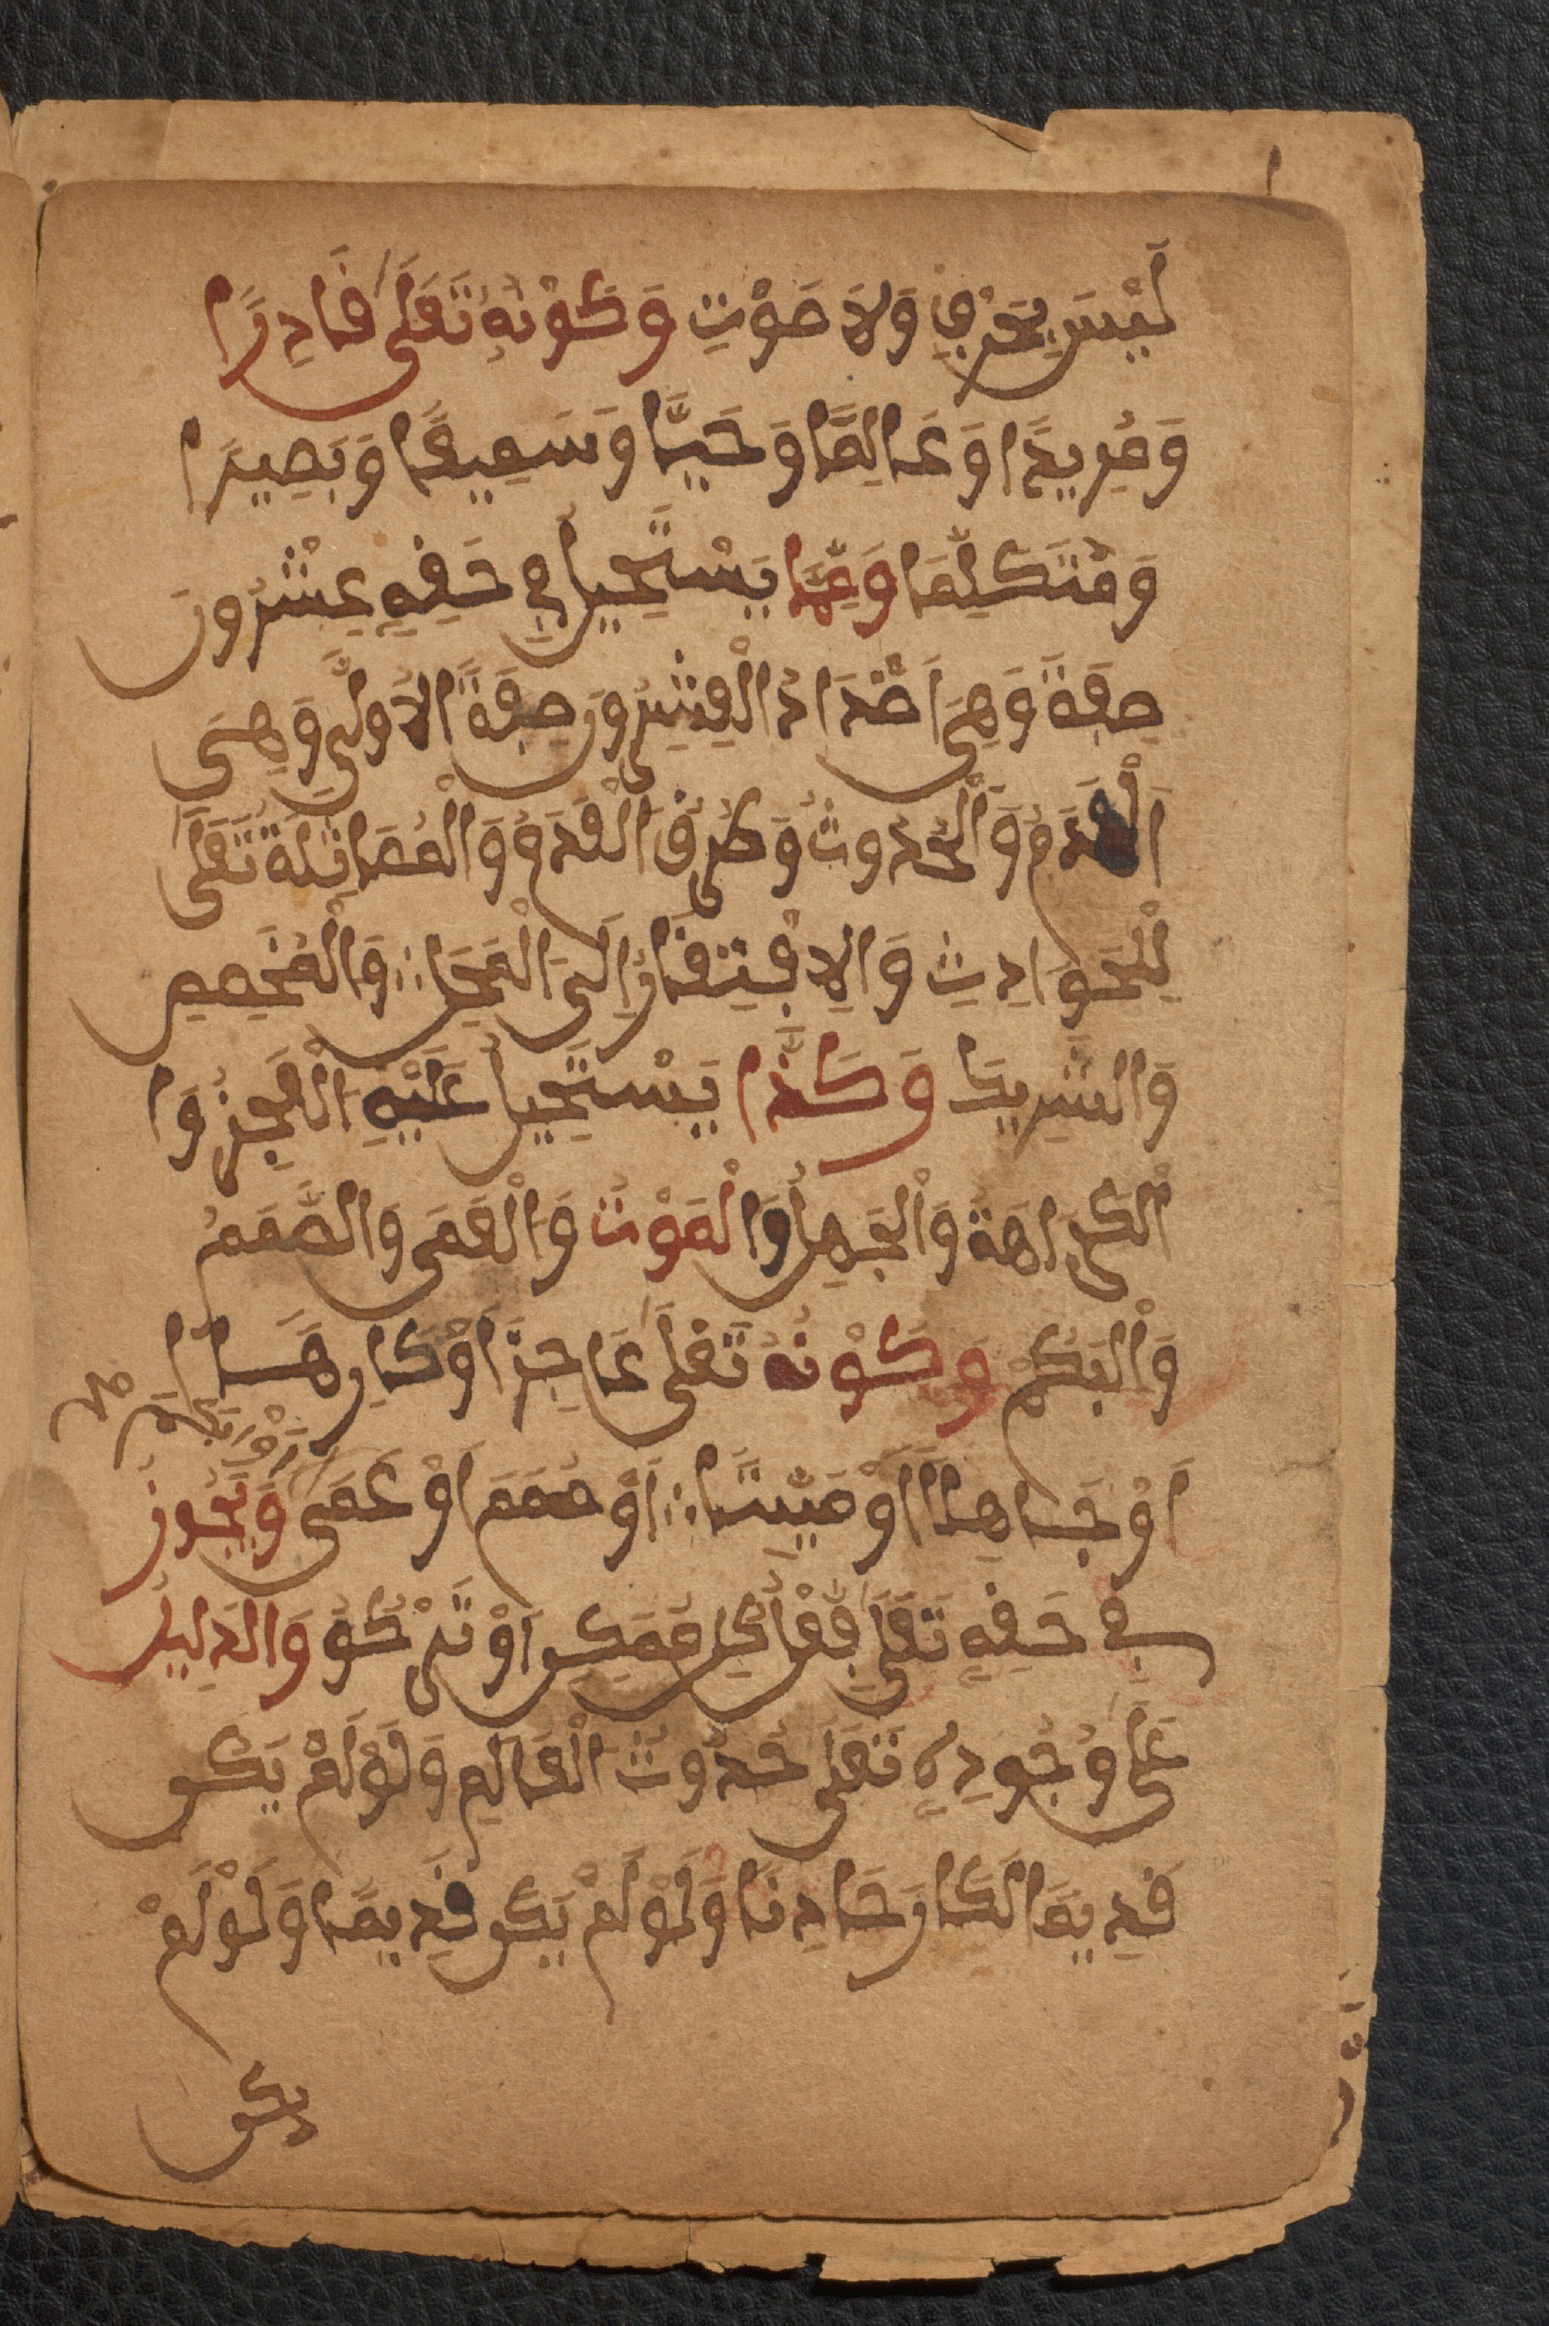 لَيْسَ بِحَرْفٍ وَلَا صَوْتٍ وَكَوْنُهُ تَعَلَى قَادِرًا
وَمُرِيدًا وَعَالِمًا وَحَيًّا وَسَمِيعًا وَبَصِيرًا
وَمُتَكَلِّمَا وَمِمَّا يَسْتَحِيلُ فِي حَقِهِ عِشْرُونَ
صِفَةً وَهِيَ أَضْدَادُ الْعِشِرُونَ صِفَةً الأُولَى وَهِيَ
اَلْعَدَمُ وَالْحُدُوثُ وَطُرُقُ الْعَدَمُ وَالْمُمَاثِلَةُ تَعَلَى
لِلْحَوَادِثِ وَالِافْتِقَارُ إِلَى الْمَحَلِ والْمُخَصِصِ
وَالشَرِيكِ وَكَذَا يَسْتَحِيلُ عَلَيْهِ الْعَجِزُ وَا
لْكَرَاهَةُ وَالْجَهِلُ وَالْمَوْتُ وَالْعَمَى وَالصَّمَمُ
وَالْبَكَمْ وَكَوْنُهُ تَعَلَى عَاجِزًا أَوْ كَارِهًا
أَوْ جَاهِلًا أَوْ مَيِّتًا أَوْ صَمَمَ أَوْ عَمَى وَيَجُوزُ
أَوْ ابَكَمَ صح
فِي حَقِهِ تَعَلَى فِعْلُ كُلِ مُمَكِنِ أَوْ تَرْكُهُ وَالدَلِيلُ
عَلَى وُجُودِهِ تَعَلَى حُدُوثُ الْعَالَمِ وَلَوْ لَمْ يَكُنْ
قَدِيمَا لَكَانَ حَادِثَا وَلَوْ لَمْ يَكُنْ قَدِيمًا وَلَوْ لَمْ
يكن